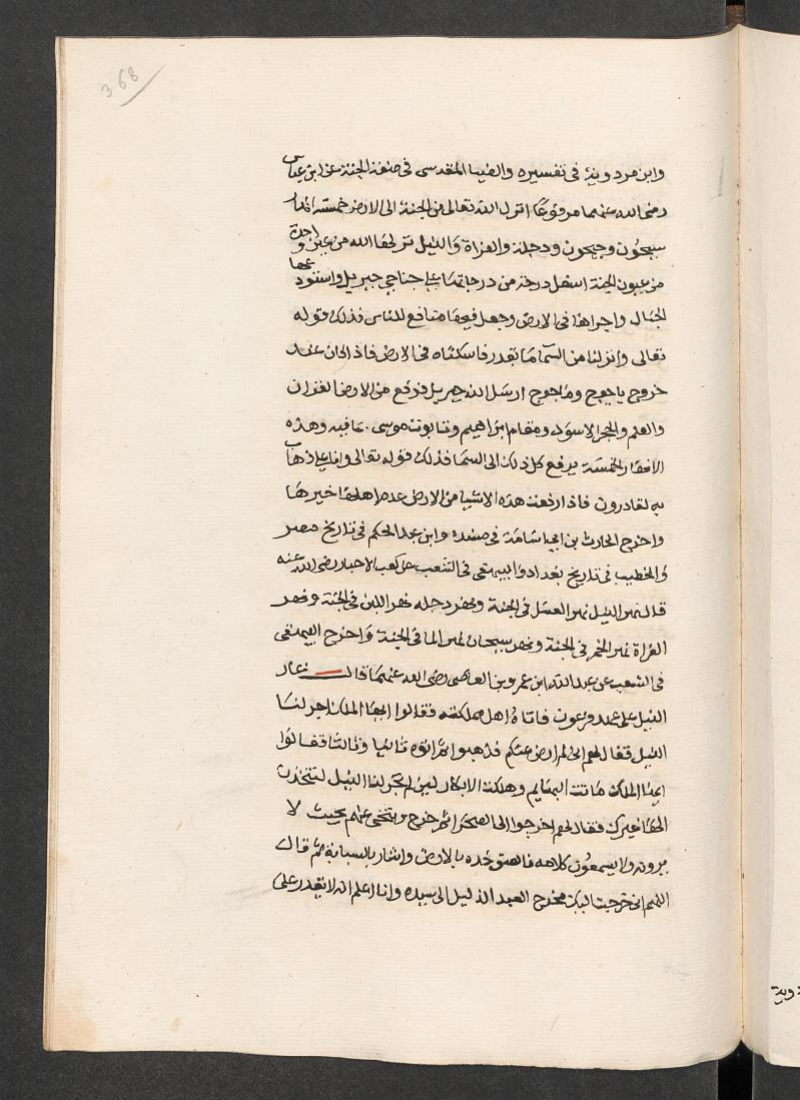 368
وابن مردويه في تفسيره والضيا المقدسي في صفة الجنة عن ابن عباس
رضي الله عنهما مرفوعا انزل الله تعالى من الجنة الى الارض خمسة انهار
سيحون وجيحون ودجلة والفراة والنيل نزلها الله من عين واحدة
من عيون الجنة اسفل درجة من درجاتها على جناحي جبريل واستودعها
الجبال واجراها في الارض وجعل فيها منافع للناس فذلك قوله
تعالى وانزلنا من السما ما بقدر فاسكناه في الارض فاذا كان عند
خروج ياجوج وماجوج ارسل الله جبريل فرفع من الارض القران
والعلم والحجر الاسود ومقام ابراهيم وتابوت موسى بما فيه وهذه
الانهار الخمسة يرفع كل ذلك الى السما فذلك قوله تعالى وانا على ذهاب
به لقادرون فاذا رفعت هذه الاشيا من الارض عدم اهلها خيرها
واخرج الحارث بن ابي اسامة في مسنده وابن عبد الحكم في تاريخ مصر
والخطيب في تاريخ بغداد والبيهقي في الشعب عن كعب الاحبار رضي الله عنه
قال نهر النيل نهر العسل في الجنة ونهر دجله نهر اللبن في الجنة ونهر
الفراة نهر الخمر في الجنة ونهر سيحان نهر الما في الجنة واخرج البيهقي
في الشعب عن عبد الله ابن عمرو بن العاصي رضي الله عنهما قال غار
النيل على عهد فرعون فاتاه اهل مملكته فقالوا ايها الملك اجر لنا
النيل فقال لهم اني لم ارض عنكم فذهبوا ثم اتوه ثانيا وثالثا فقالوا
ايها الملك ماتت البهايم وهلكت الابكار لين لم تجر لنا النيل لنتخذن
الها غيرك فقال لهم اخرجوا الى الصحرا ثم خرج وتنحى عنهم بحيث لا
يرونه ولا يسمعون كلامه فالصق خده بالارض واشار بالسبابة ثم قال
اللهم اني خرجت اليك مخرج العبد الذليل الى سيده وانا اعلم انه لا يقدر على